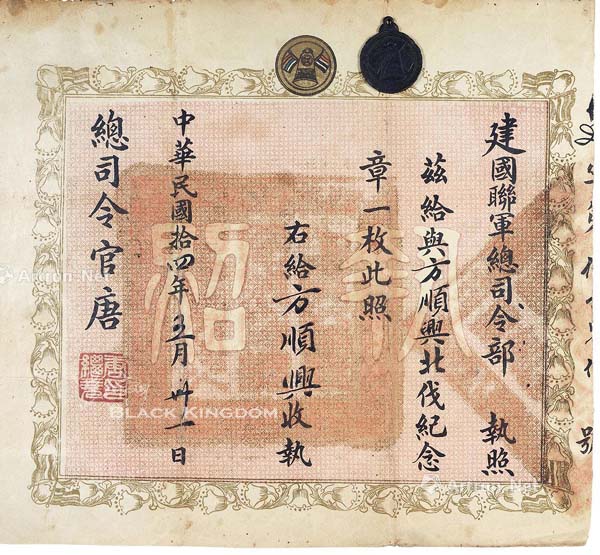 號
建國聯軍總司令部 執照
茲給與方順興北伐紀念
章一枚此照
右給方順興收執
中華民國拾四年五月卅一日
總司令官唐
執照
BLACK KINGDOM
Artron.Net
Artron.Net